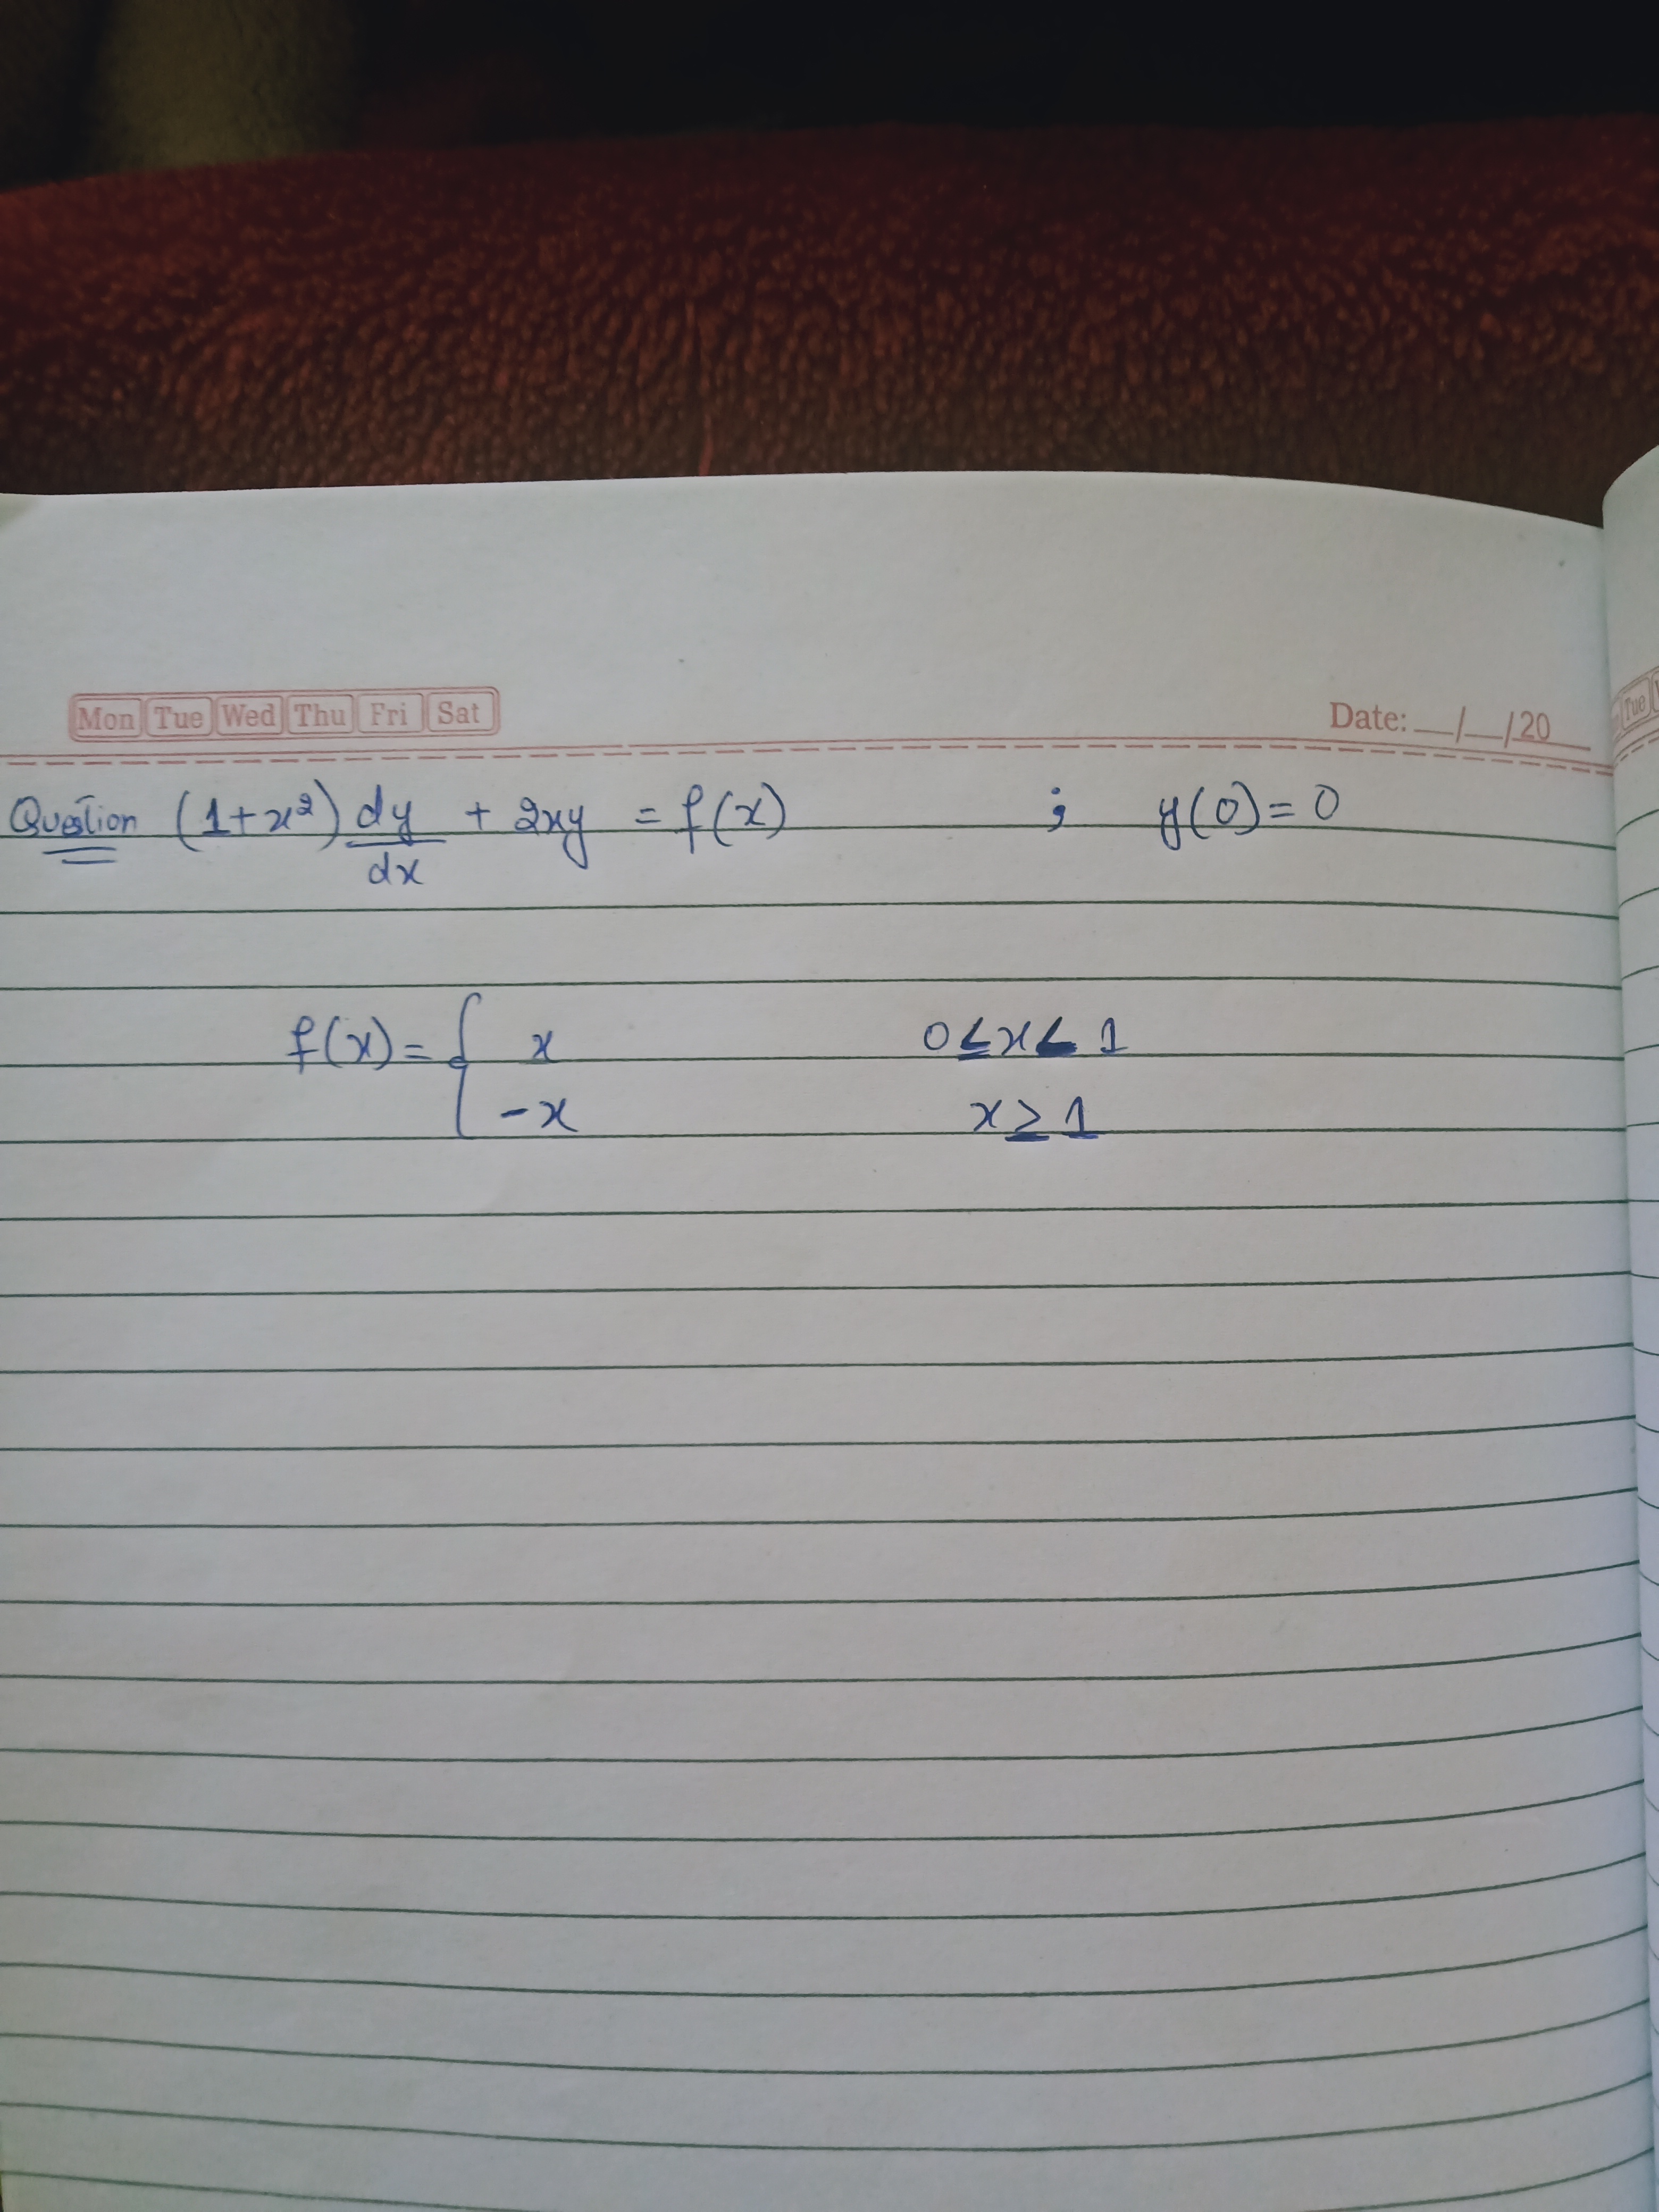 Mon Tue Wed Thu Fri Sat
Date: __/__/20
Tue
Question (1+x²) dy/dx + 2xy = f(x) ; y(0)=0
f(x) = { x 0≤x<1
-x x≥1